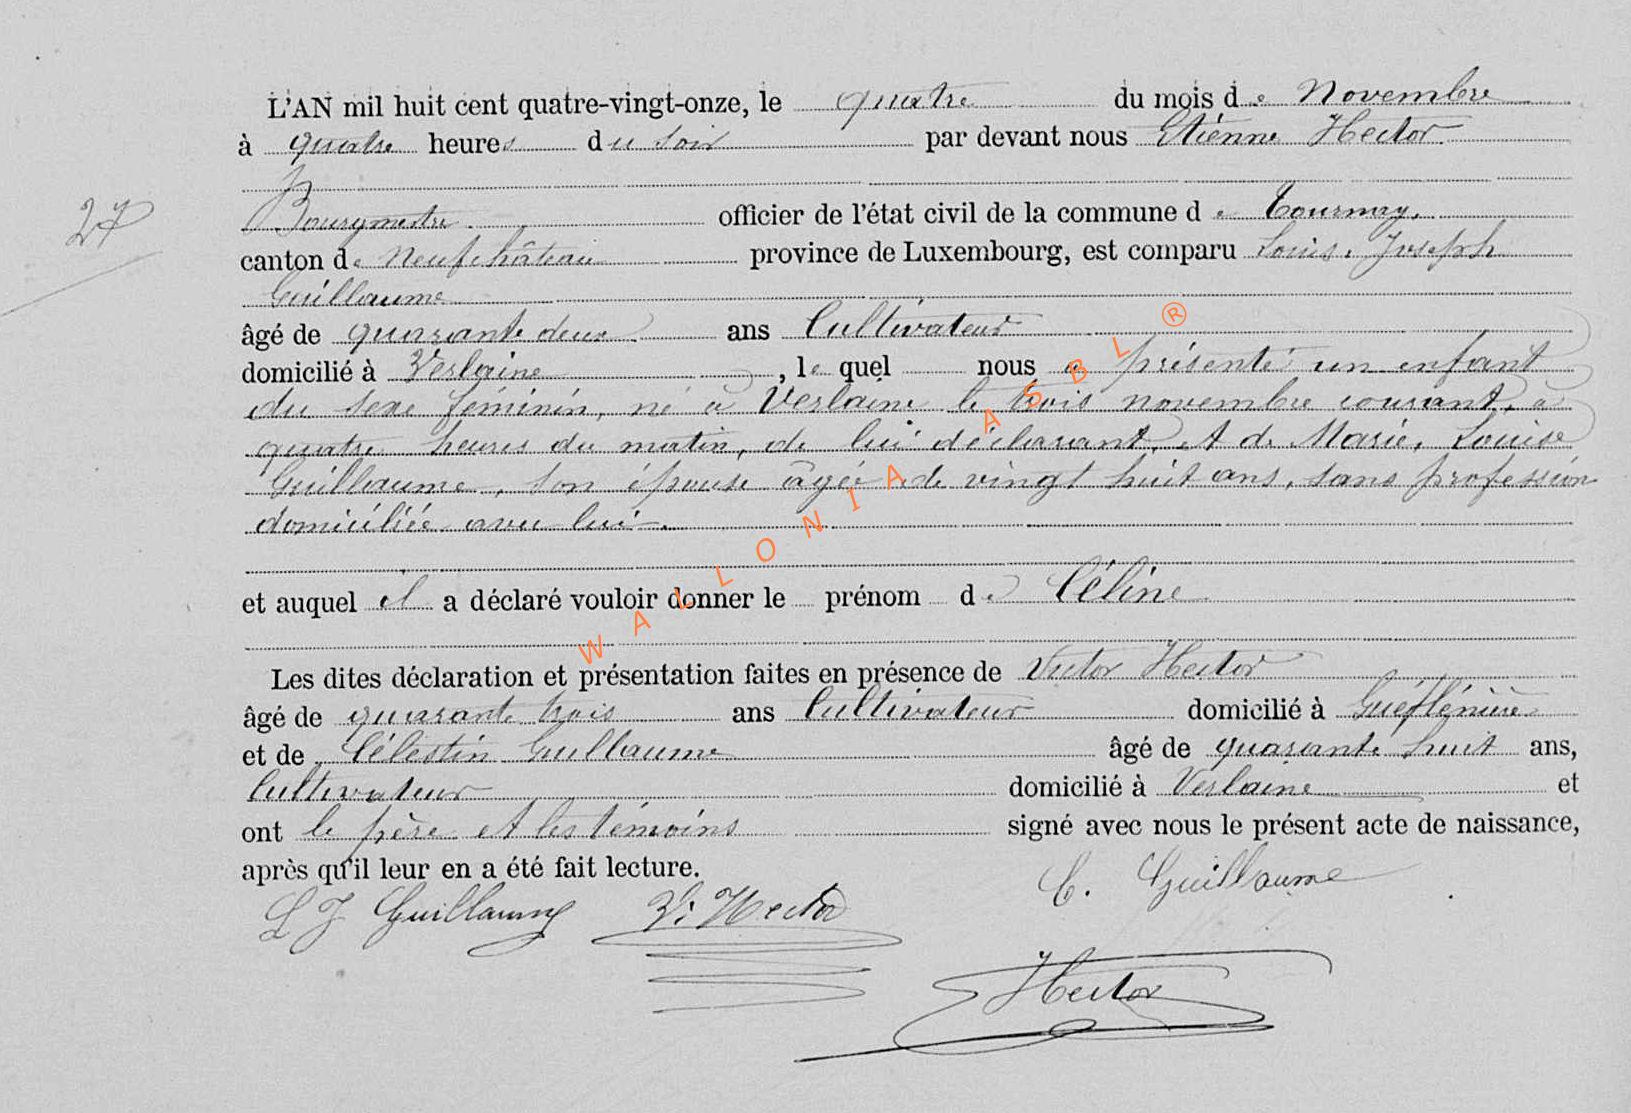 L'AN mil huit cent quatre-vingt-onze, le quatre du mois de Novembre
à quatre heures du soir par devant nous Etienne Hector
27
Bourgmestre officier de l'état civil de la commune de Tournay,
canton de Neufchâteau province de Luxembourg, est comparu Louis, Joseph
Guillaume
âgé de quarante deux ans Cultivateur
domicilié à Verlaine, lequel nous a présenté un enfant
du sexe féminin, né à Verlaine le trois novembre courant, à
quatre heures du matin, de lui déclarant, et de Marie, Louise
Guillaume, son épouse âgée de vingt huit ans, sans profession
domiciliée avec lui.
et auquel il a déclaré vouloir donner le prénom de Céline
Les dites déclaration et présentation faites en présence de Victor Hector
âgé de quarante trois ans Cultivateur domicilié à
et de Célestin Guillaume âgé de quarante huit ans,
Cultivateur domicilié à Verlaine et
ont le père et les témoins signé avec nous le présent acte de naissance,
après qu'il leur en a été fait lecture.
L J Guillaume V. Hector C. Guillaume
Hector
WALLONIA ASBL ®